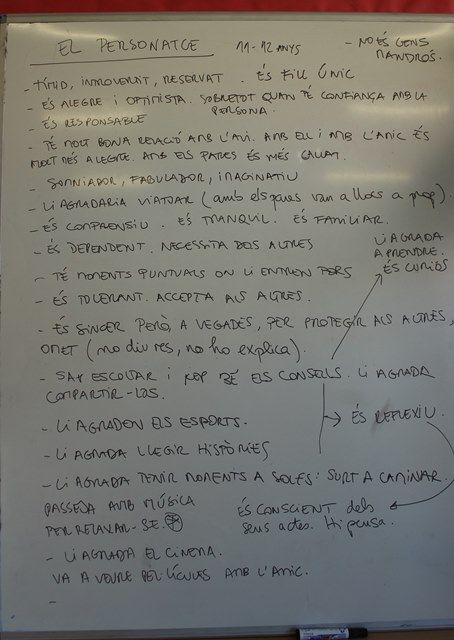 EL PERSONATGE 11-12 ANYS
- NO ÉS GENS
MANDRÓS.
- TÍMID, INTROVERTIT, RESERVAT. ÉS FILL ÚNIC
- ÉS ALEGRE I OPTIMISTA. SOBRETOT QUAN TÉ CONFIANÇA AMB LA
PERSONA.
- ÉS RESPONSABLE
- TÉ MOLT BONA RELACIÓ AMB L'AVI. AMB ELL I AMB L'AMIC ÉS
MOLT MÉS ALEGRE. AMB ELS PARES ÉS MÉS CALLAT.
- SOMNIADOR, FABULADOR, IMAGINATIU
- LI AGRADARIA VIATJAR (amb els pares van a llocs a prop).
- ÉS COMPRENSIU. ÉS TRANQUIL. ÉS FAMILIAR.
- ÉS DEPENDENT. NECESSITA DELS ALTRES
LI AGRADA
APRENDRE.
ÉS CURIÓS
- TÉ MOMENTS PUNTUALS ON LI ENTREN PORS
- ÉS TOLERANT. ACCEPTA ALS ALTRES.
- ÉS SINCER PERÒ, A VEGADES, PER PROTEGIR ALS ALTRES,
OMET (no diu res, no ho explica).
- SAP ESCOLTAR I REP BÉ ELS CONSELLS. LI AGRADA
COMPARTIR-LOS.
- LI AGRADEN ELS ESPORTS.
→ ÉS REFLEXIU.
- LI AGRADA LLEGIR HISTÒRIES
- LI AGRADA TENIR MOMENTS A SOLES: SURT A CAMINAR.
PASSEJA AMB MÚSICA
PER RELAXAR-SE.
ÉS CONSCIENT dels
seus actes. Hi pensa.
- LI AGRADA EL CINEMA.
VA A VEURE PEL·LÍCULES AMB L'AMIC.
-